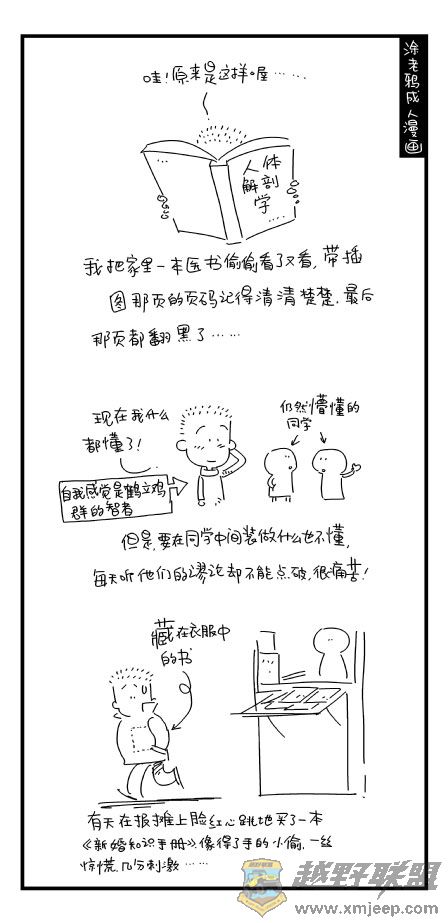 涂老鸦成人漫画
哇!原来是这样喔……
人体
解剖
学
我把家里一本医书偷偷看了又看,带插
图那页的页码记得清清楚楚,最后
那页都翻黑了……
现在我什么
都懂了!
仍然懵懂的
同学
自我感觉是鹤立鸡
群的智者
但是,要在同学中间装做什么也不懂,
每天听他们的谬论却不能点破,很痛苦!
藏在衣服中
的书
有天在报摊上脸红心跳地买了一本
《新婚知识手册》像得了手的小偷,一丝
惊慌,几分刺激……
越野联盟
www.xmjeep.com